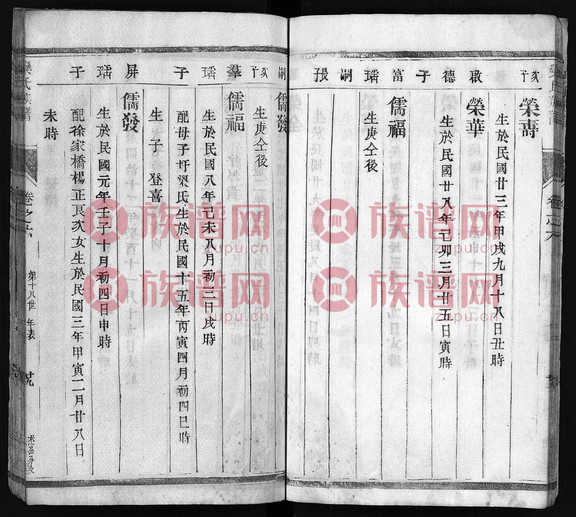 榮壽
生於民國廿三年甲戌九月十八日丑時
啟
德
榮華
生於民國廿八年己卯三月廿五日寅時
子
富
儒福
生庚仝後
璠
嗣
儒發
生庚仝後
羣
璠
子
儒福
生於民國八年己未八月初三日戌時
配母子圩梁氏生於民國十五年丙寅四月初四巳時
生子 登喜
屏
璠
子
儒發
生於民國元年壬子十月初四日申時
配徐家橋楊正良次女生於民國三年甲寅二月廿八日
未時
卷之六
第十八世 年表
族谱网
zupu.cn
族谱网
zupu.cn
族谱网
zupu.cn
族谱网
zupu.cn